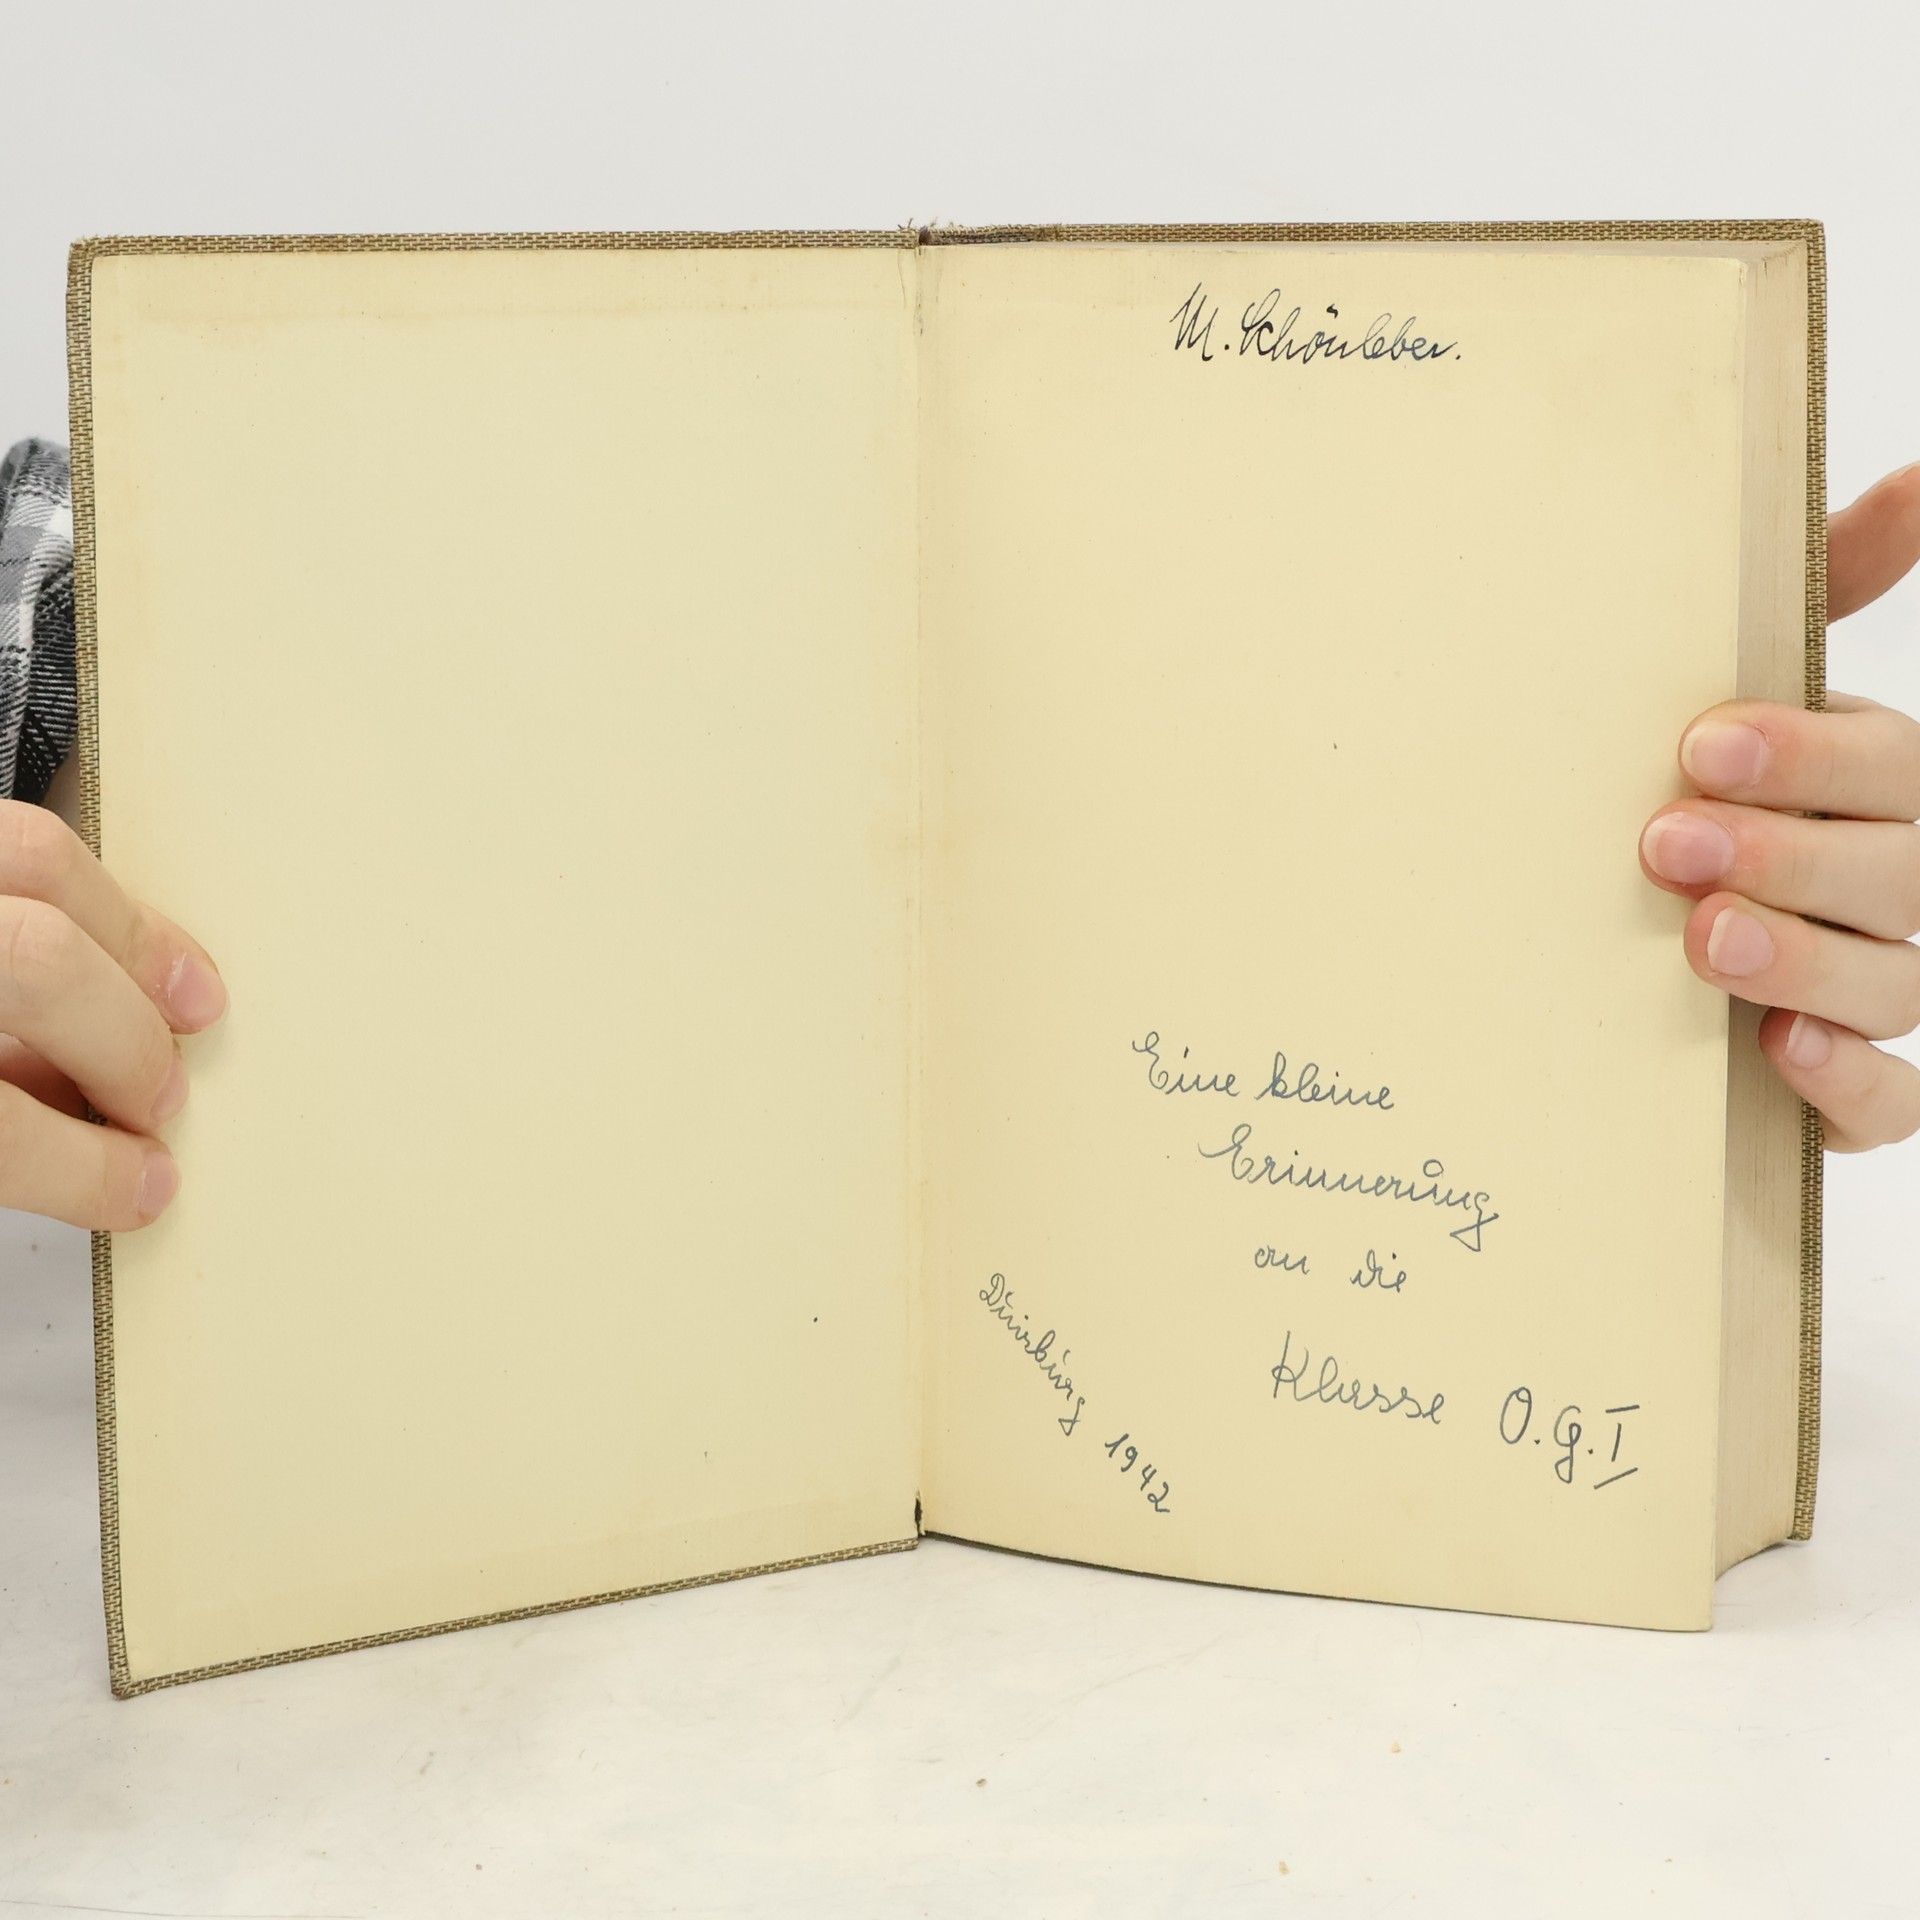 M. Schönleber.
Eine kleine
Erinnerung
an die
Klasse O.G.I
Duisburg 1942